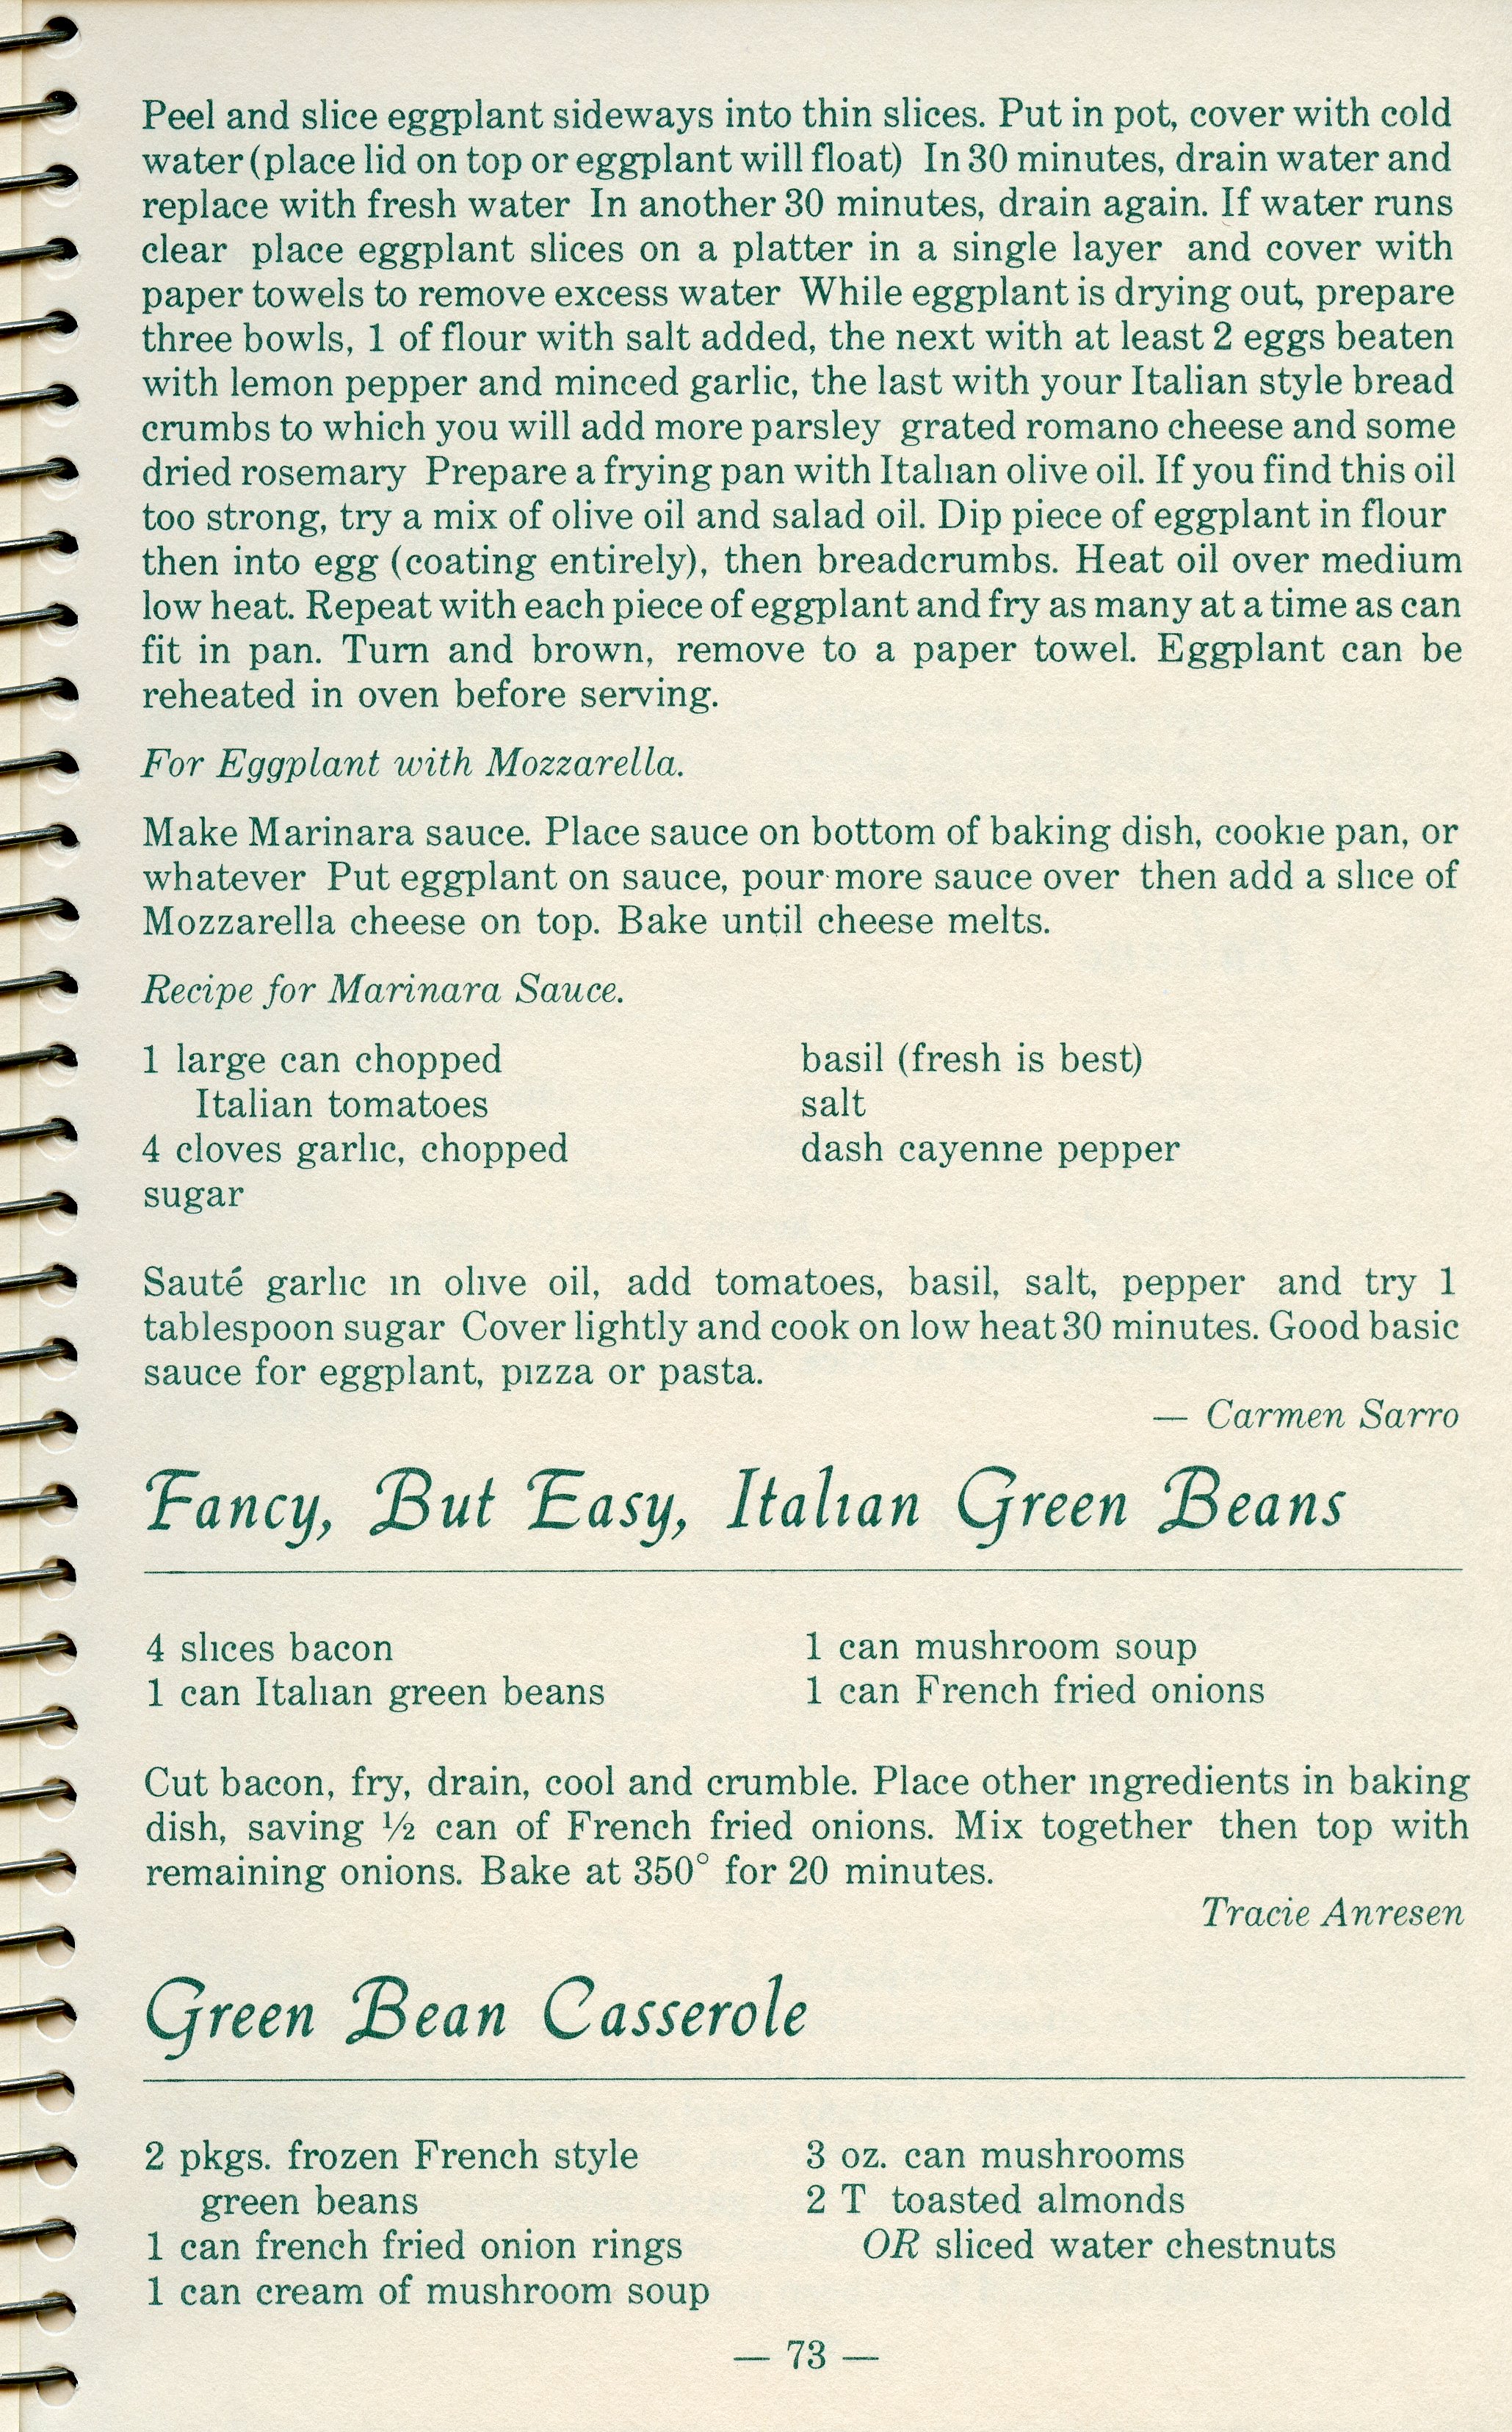 Peel and slice eggplant sideways into thin slices. Put in pot, cover with cold
water (place lid on top or eggplant will float) In 30 minutes, drain water and
replace with fresh water In another 30 minutes, drain again. If water runs
clear place eggplant slices on a platter in a single layer and cover with
paper towels to remove excess water While eggplant is drying out, prepare
three bowls, 1 of flour with salt added, the next with at least 2 eggs beaten
with lemon pepper and minced garlic, the last with your Italian style bread
crumbs to which you will add more parsley grated romano cheese and some
dried rosemary Prepare a frying pan with Italian olive oil. If you find this oil
too strong, try a mix of olive oil and salad oil. Dip piece of eggplant in flour
then into egg (coating entirely), then breadcrumbs. Heat oil over medium
low heat. Repeat with each piece of eggplant and fry as many at a time as can
fit in pan. Turn and brown, remove to a paper towel. Eggplant can be
reheated in oven before serving.
For Eggplant with Mozzarella.
Make Marinara sauce. Place sauce on bottom of baking dish, cookie pan, or
whatever Put eggplant on sauce, pour more sauce over then add a slice of
Mozzarella cheese on top. Bake until cheese melts.
Recipe for Marinara Sauce.
1 large can chopped
Italian tomatoes
4 cloves garlic, chopped
sugar
basil (fresh is best)
salt
dash cayenne pepper
Sauté garlic in olive oil, add tomatoes, basil, salt, pepper and try 1
tablespoon sugar Cover lightly and cook on low heat 30 minutes. Good basic
sauce for eggplant, pizza or pasta.
— Carmen Sarro
Fancy, But Easy, Italian Green Beans
4 slices bacon
1 can Italian green beans
1 can mushroom soup
1 can French fried onions
Cut bacon, fry, drain, cool and crumble. Place other ingredients in baking
dish, saving ½ can of French fried onions. Mix together then top with
remaining onions. Bake at 350° for 20 minutes.
Tracie Anresen
Green Bean Casserole
2 pkgs. frozen French style
green beans
1 can french fried onion rings
1 can cream of mushroom soup
3 oz. can mushrooms
2 T toasted almonds
OR sliced water chestnuts
— 73 —